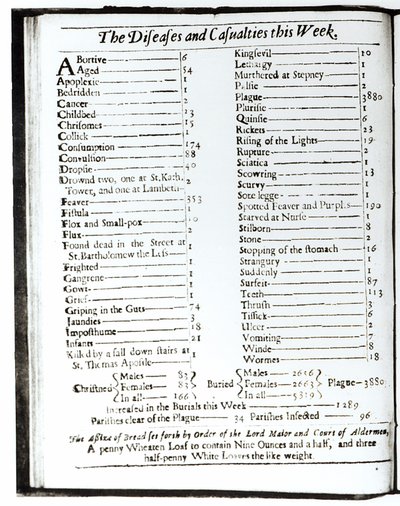 The Diseases and Casualties this Week.
Abortive 6
Aged 54
Apoplexie 1
Bedridden 1
Cancer 2
Childbed 23
Chrisomes 15
Collick 1
Consumption 174
Convulsion 88
Dropsie 40
Drownd two, one at St. Kath.
Tower, and one at Lambeth 2
Feaver 353
Fistula 1
Flox and Small-pox 10
Flux 2
Found dead in the Street at
St. Bartholomew the Less 1
Frighted 1
Gangrene 1
Gowt 1
Grief 1
Griping in the Guts 74
Jaundies 3
Imposthume 18
Infants 21
Killed by a fall down stairs at
St. Thomas Apostle 1
Kingsevil 10
Lethargy 1
Murthered at Stepney 1
Palsie 2
Plague 3880
Plurisie 1
Quinsie 6
Rickets 23
Rising of the Lights 19
Rupture 2
Sciatica 1
Scowring 13
Scurvy 1
Sore legge 1
Spotted Feaver and Purples 190
Starved at Nurse 1
Stilborn 8
Stone 2
Stopping of the stomach 16
Strangury 1
Suddenly 1
Surfeit 87
Teeth 113
Thrush 3
Tissick 6
Ulcer 2
Vomiting 7
Winde 8
Wormes 18
Christned Males 83 Females 83 In all 166
Buried Males 2656 Females 2663 In all 5319 Plague 3880
Increased in the Burials this Week 1289
Parishes clear of the Plague 34 Parishes Infected 96
The Assize of Bread set forth by Order of the Lord Maior and Court of Aldermen,
A penny Wheaten Loaf to contain Nine Ounces and a half, and three
half-penny White Loaves the like weight.